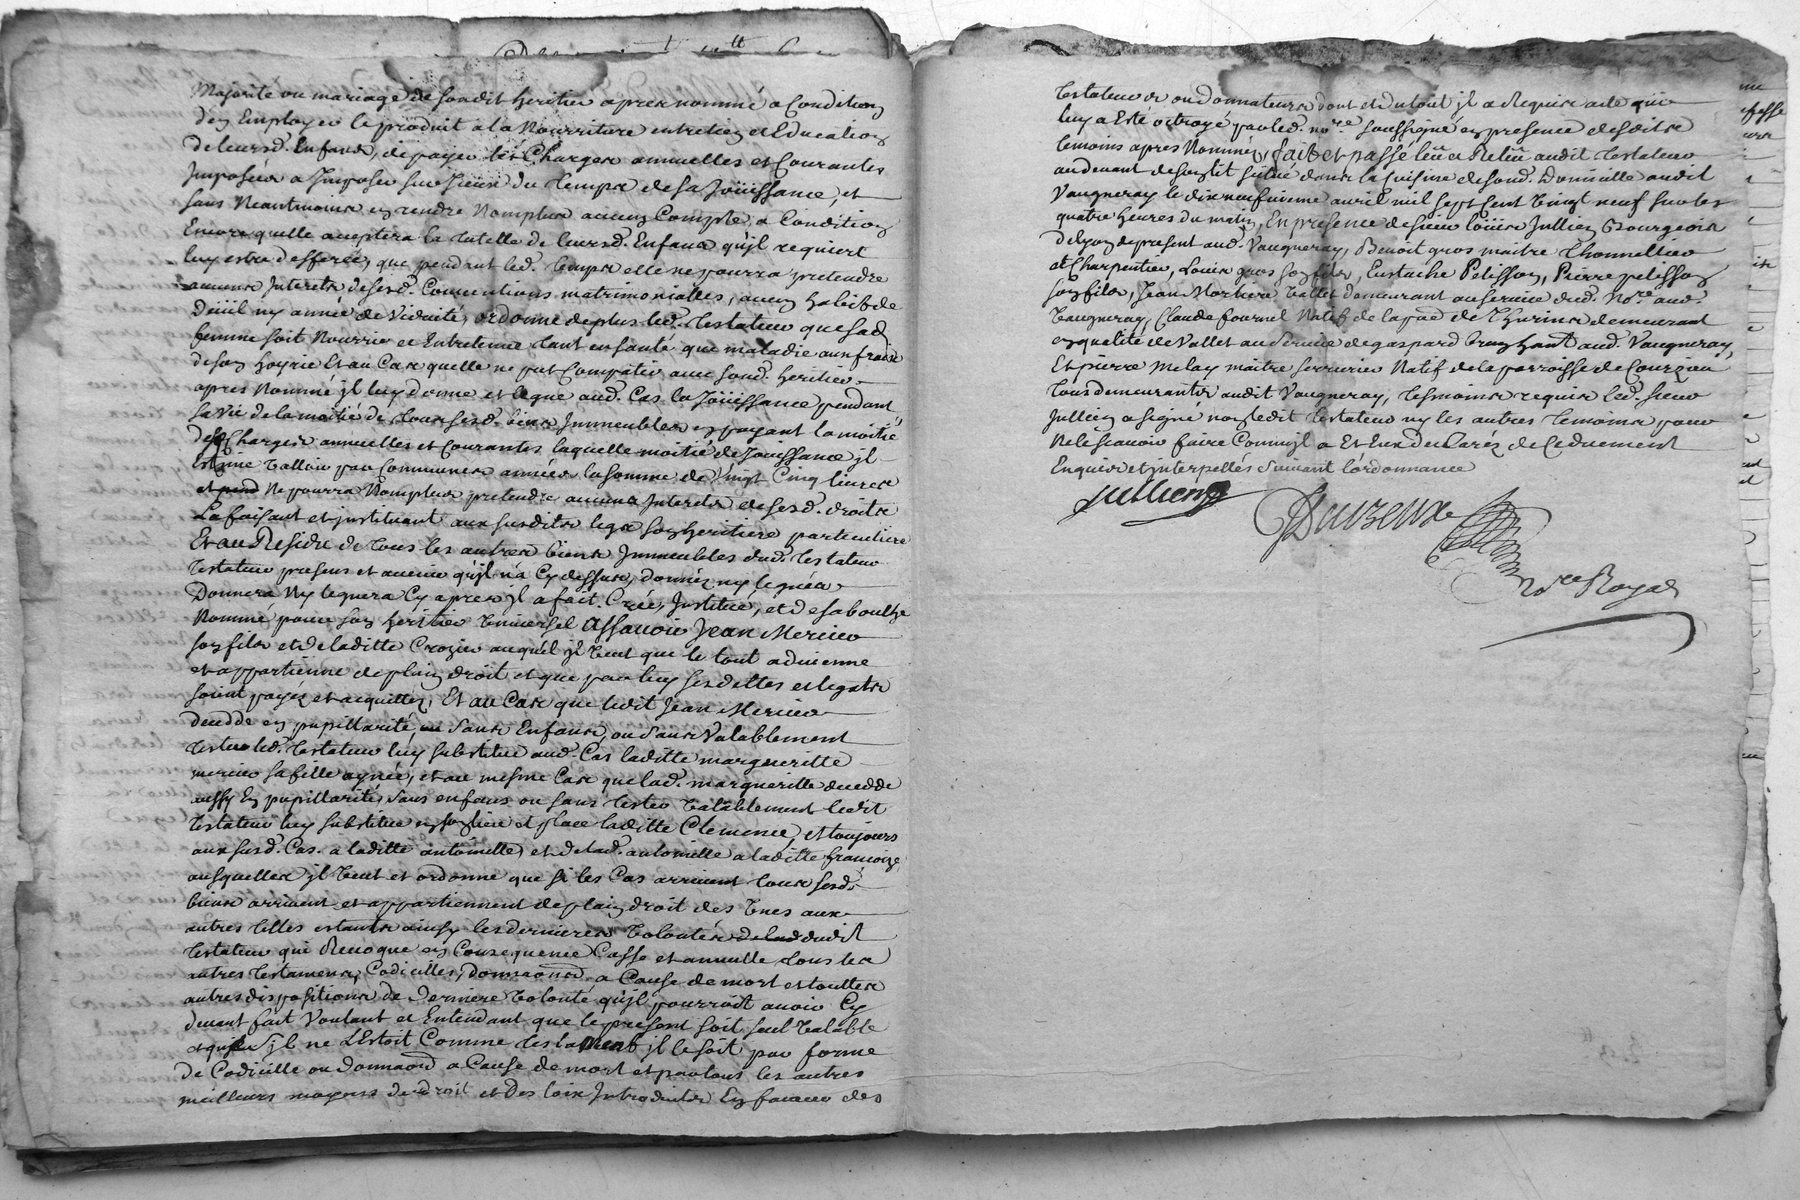 Majorité ou mariage de sondit heritier apres nommé a Condition
den Employer le produit a la Nourriture entretien et Education
de leursd. Enfans, de payer les Charges annuelles et Courantes
Imposées a Imposer sur iceux du temps de sa Joüissance, et
sans Neantmoins en rendre Nomplus aucun Compte, a Condition
Encore quelle acceptera la tutelle de leursd. Enfans qu'jl requiert
luy estre defferée, que pendant led. temps elle ne pourra pretendre
aucuns Interets de sesd. Conventions matrimonialles, aucun habit de
Düil ny année de Viduité, ordonne de plus led. Testateur que sad.
femme soit Nourrie et Entretenue tant en santé que maladie aux frais
de son hoyrie Et au Cas quelle ne put Compatir avec sond. heritier
apres Nommé jl luy donne et legue aud. Cas la Joüissance pendant
sa vie de la moitié de tous sesd. biens Immeubles en payant la moitié
des Charges annuelles et Courantes laquelle moitié de Joüissance jl
Estime valloir par Communes années la somme de Vingt Cinq livres
et pend Ne pourra Nomplus pretendre aucuns Interets de sesd. droits
La faisant et jnstituant aux susdits legs son heritiere particuliere
Et au Residu de tous les autres biens Immeubles dud. Testateur
Testateur presens et avenir qu'jl n'a Cy dessus, donnés ny legués
Donnera Ny leguera Cy apres jl a fait, Créé, Institué, et de sa bouche
Nommé pour son heritier Universel Assavoir Jean Mercier
son fils et de laditte Crozier auquel jl Veut que le tout advienne
et appartienne de plain droit et que par luy ses dettes et legats
soint payez et acquittez, Et au Cas que ledit Jean Mercier
decedde en pupillarité, ou Sans Enfans, ou Sans Valablement
tester led. Testateur luy substitue aud. Cas laditte margueritte
mercier sa fille aynée, et au mesme Cas que lad. margueritte decedde
aussy En pupillarité, sans enfans ou sans tester Valablement ledit
Testateur luy substitue en son lieu et place laditte Clemence, et toujours
aux susd. Cas. a laditte antoinette, et de lad. antoinette a laditte françoize
ausquelles jl Veut et ordonne que si les Cas arrivent tous sesd.
biens arrivent et appartiennent de plain droit des Unes aux
autres telles estants ainsy les dernieres Volontés de lad dudit
Testateur qui Revoque en Consequence Casse et annulle tous les
autres Testamens, Codicilles, Donnaons a Cause de mort et touttes
autres dispositions de Derniere Volonté qu'jl pourroit avoir Cy
devant fait Voulant et Entendant que le present soit seul Valable
et que sy jl ne L'Estoit Comme testament jl le soit par forme
de Codicille ou donnaon a Cause de mort et par tous les autres
meilleurs moyens de droit et Des loix Introduites En faveur des
Testateurs ou donnateurs dont et du tout jl a Requis acte qui
luy a Esté octroyé par led. nore. soussigné en presence desdits
temoins apres Nommés, fait et passé leü et Releü audit Testateur
au devant de son lit situé dans la Cuisine de sond. Domicille audit
Vaugneray le dix neufvieme avril mil sept cent Vingt neuf sur les
quatre heures du matin, En presence de sieur loüis Jullien Bourgeois
de lyon de present aud. Vaugneray, Benoit gros maitre Thonnellier
et Charpentier, Louis gros son fils, Eustache Pelisson, Pierre pelisson
son fils, Jean Mortier Vallet demeurant au service dud. Nore. aud.
Vaugneray, Claude fournel Natif de la psse de Thurins demeurant
en qualité de Vallet au service de gaspard aud. Vaugneray,
Et pierre melay maitre serrurier Natif de la parroisse de Courzieu
tous demeurants audit Vaugneray, tesmoins requis led. sieur
Jullien a signé non ledit Testateur ny les autres temoins pour
Ne le scavoir faire Comm'jl a Et Eux declarés de Ce duement
Enquis et interpellés suivant l'ordonnance
Jullien
Nore Royal